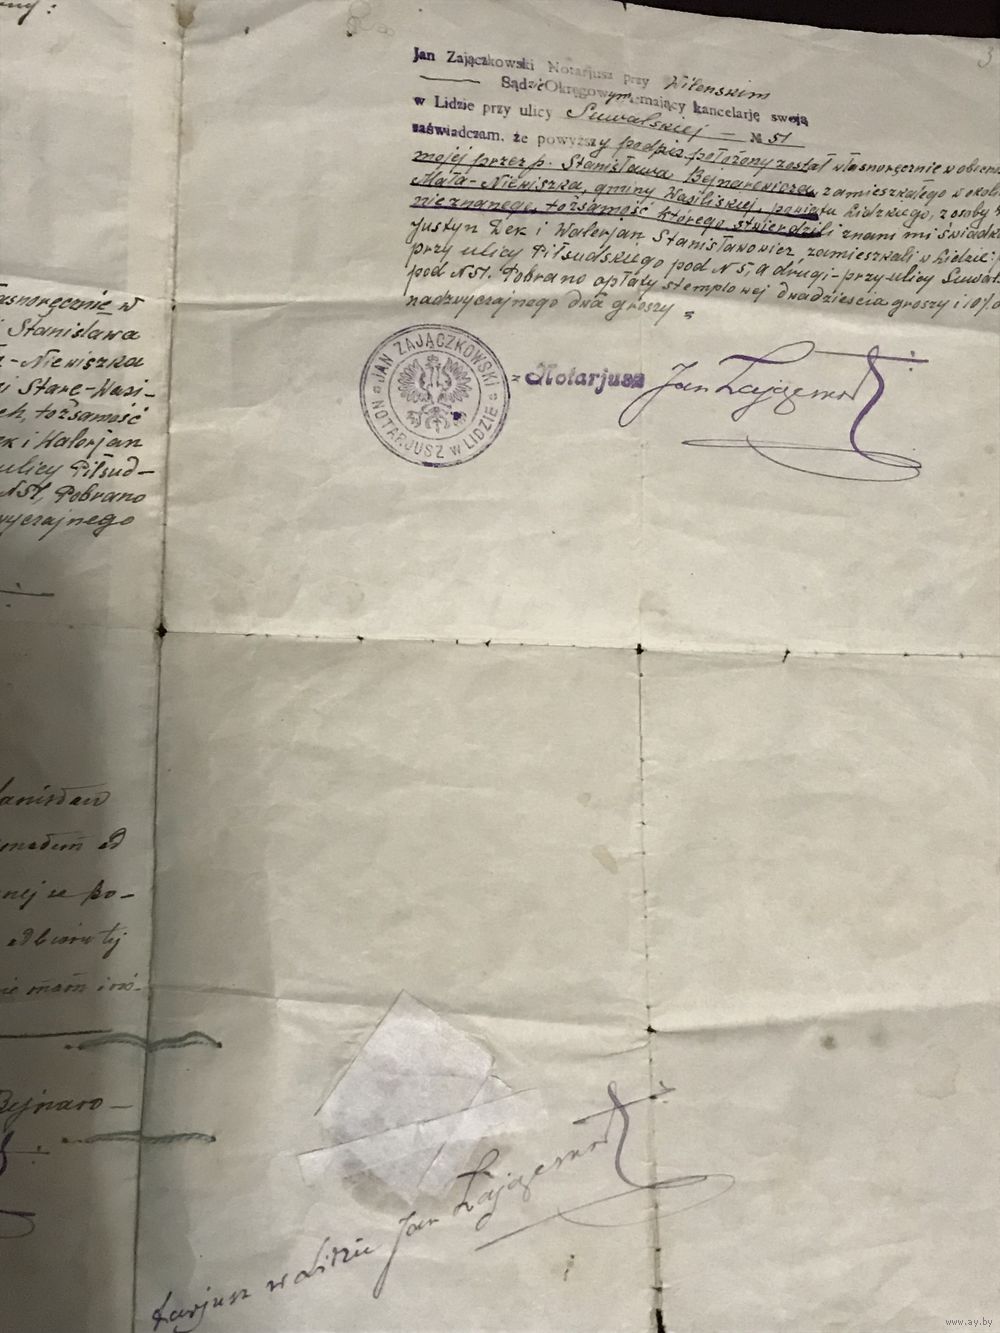 3
Jan Zajączkowski Notarjusz przy Wileńskim
Sądzie Okręgowym, mający kancelarję swoją
w Lidzie przy ulicy Suwalskiej — № 51
zaświadczam, że powyższy podpis położony został własnoręcznie w
mojej przez p. Stanisława Bejnarowicza, zamieszkałego w
Mała-Niewiszka, gminy Wasiliskiej, powiatu Lidzkiego, z osoby
nieznanego, tożsamość którego stwierdzili znani mi
Justyn Żek i Walerjan Stanisławowicz, zamieszkali w Lidzie:
przy ulicy Piłsudskiego pod N 5, a drugi-przy ulicy
pod N 51. Pobrano opłaty stemplowej dwadzieścia groszy i 10%
nadzwyczajnego dwa groszy
JAN ZAJĄCZKOWSKI
NOTARJUSZ w LIDZIE
Notarjusz Jan Zajączkowski
w
Stanisława
-Niewiszka
i Stare-Wasi-
tożsamość
i Walerjan
ulicy Piłsud-
N 51, Pobrano
od
nej
po-
odbioru tej
nie mam
Bejnaro-
w Lidzie Jan Zajączkowski
www.ay.by